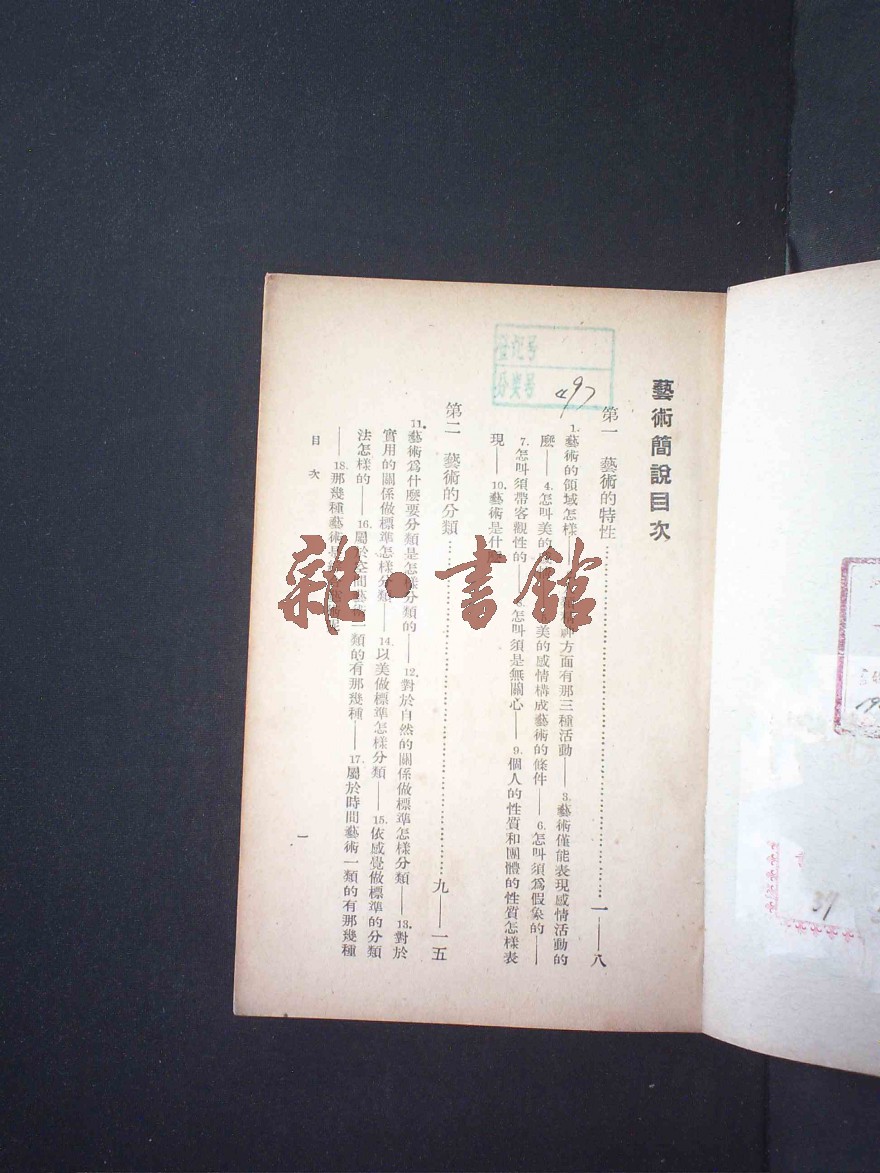 藝術簡說目次
第一　藝術的特性……一——八
1.藝術的領域怎樣——神方面有那三種活動——3.藝術僅能表現感情活動的
麽——4.怎叫美的美的感情構成藝術的條件——6.怎叫須爲假象的——
7.怎叫須帶客觀性的——怎叫須是無關心——9.個人的性質和團體的性質怎樣表
現——10.藝術是什
第二　藝術的分類……九——一五
11.藝術爲什麽要分類是怎樣分類的——12.對於自然的關係做標準怎樣分類——13.對於
實用的關係做標準怎樣分類——14.以美做標準怎樣分類——15.依感覺做標準的分類
法怎樣的——16.屬於空間藝術一類的有那幾種——17.屬於時間藝術一類的有那幾種
——18.那幾種藝術是
目次
一
登記号
分类号
雜·書館
37